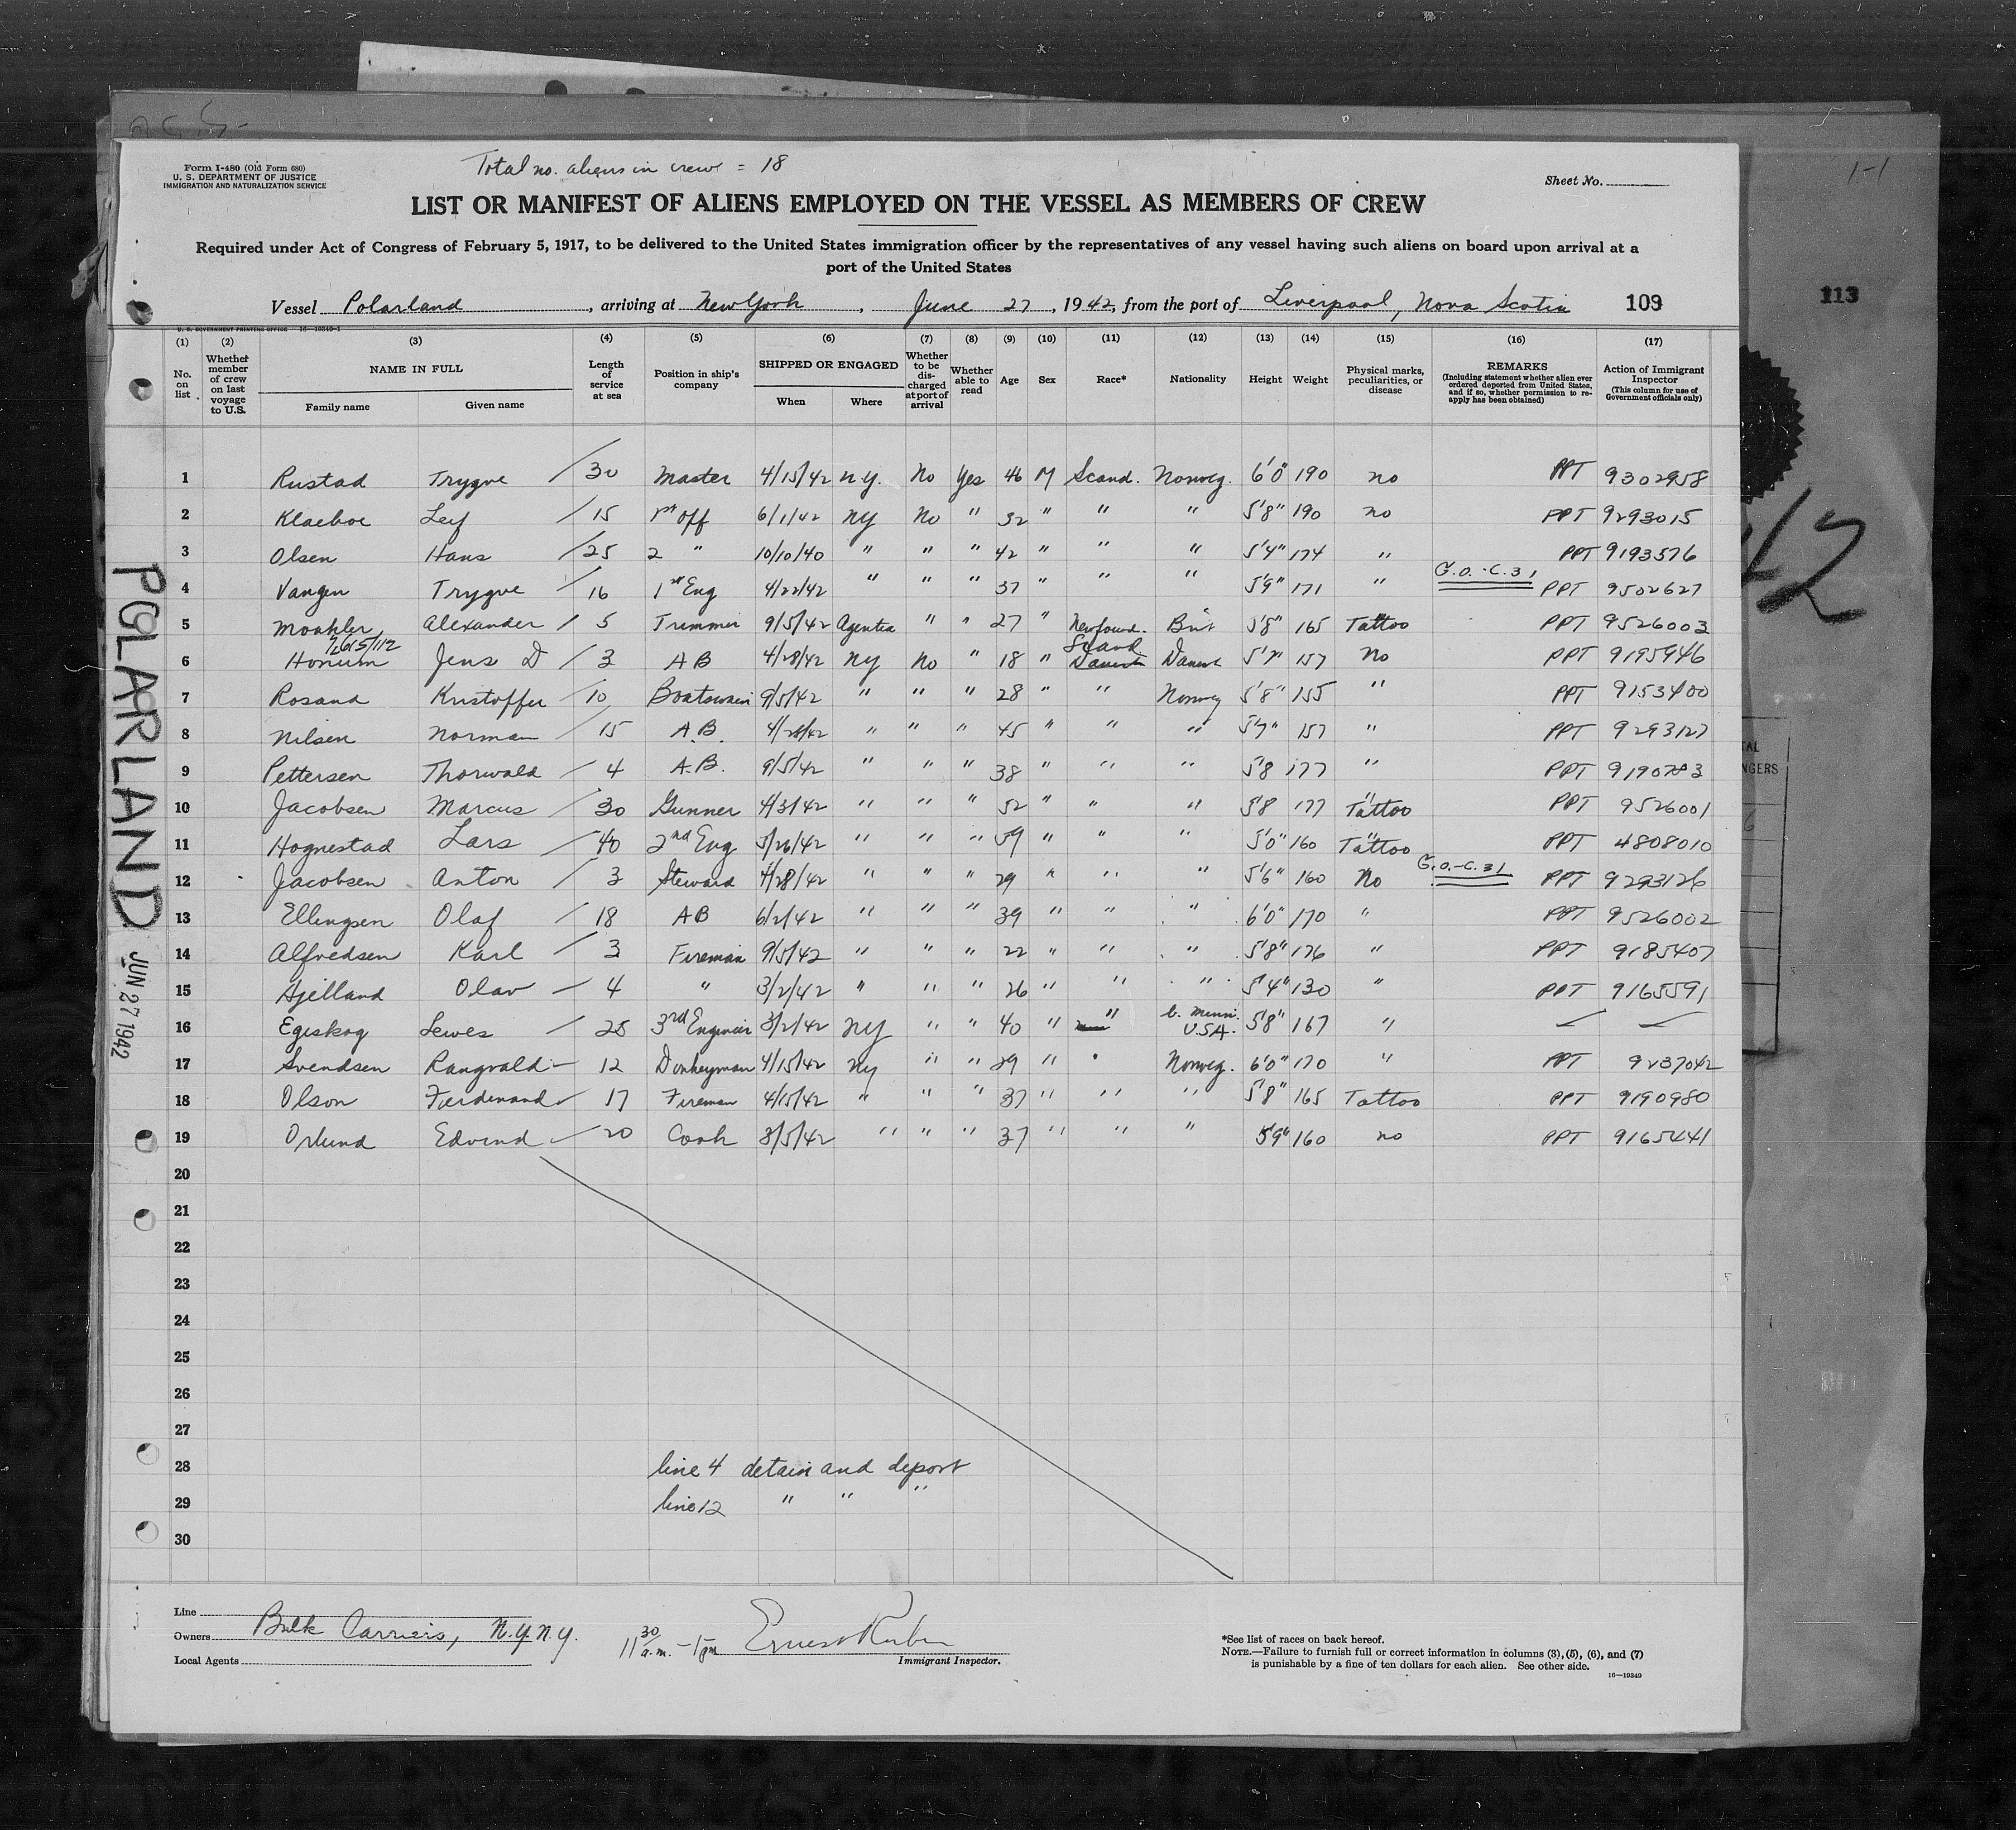 Form I-480 (Old Form 680)
U. S. DEPARTMENT OF JUSTICE
IMMIGRATION AND NATURALIZATION SERVICE
Total no. aliens in crew = 18
Sheet No.
LIST OR MANIFEST OF ALIENS EMPLOYED ON THE VESSEL AS MEMBERS OF CREW
Required under Act of Congress of February 5, 1917, to be delivered to the United States immigration officer by the representatives of any vessel having such aliens on board upon arrival at a
port of the United States
Vessel Polarland, arriving at New York, June 27, 1942, from the port of Liverpool, Nova Scotia 109
113
1-1
U. S. GOVERNMENT PRINTING OFFICE 16-19349-1
(1) (2) (3) (4) (5) (6) (7) (8) (9) (10) (11) (12) (13) (14) (15) (16) (17)
No. on list
Whether member of crew on last voyage to U.S.
NAME IN FULL
Family name Given name
Length of service at sea
Position in ship's company
SHIPPED OR ENGAGED
When Where
Whether to be discharged at port of arrival
Whether able to read
Age
Sex
Race*
Nationality
Height
Weight
Physical marks, peculiarities, or disease
REMARKS
(Including statement whether alien ever ordered deported from United States, and if so, whether permission to re-apply has been obtained)
Action of Immigrant Inspector
(This column for use of Government officials only)
1 Rustad Trygve / 30 Master 4/15/42 N.Y. No Yes 46 M Scand. Norweg. 6'0" 190 no PPT 9302958
2 Klaeboe Leif / 15 1st off 6/1/42 NY No " 32 " " " 5'8" 190 no PPT 9293015
3 Olsen Hans / 25 2 " 10/10/40 " " " 42 " " " 5'4" 174 " PPT 9193576
4 Vangen Trygve / 16 1st Eng 4/22/42 " " " 37 " " " 5'9" 171 " G.O.-C.31 PPT 9502627
5 Moakler Alexander / 5 Trimmer 9/5/42 Agentia " " 27 " Newfound. Brit 5'8" 165 Tattoo PPT 9526003
6 Honum Jens D / 3 AB 4/28/42 NY No " 18 " Scand Danish Danish 5'7" 157 No PPT 9195946
7 Rosand Kristoffer / 10 Boatswain 9/5/42 " " " 28 " " Norweg 5'8" 155 " PPT 9153400
8 Nilsen Norman / 15 A.B. 4/28/42 " " " 45 " " " 5'7" 157 " PPT 9293127
9 Pettersen Thorwald / 4 A.B. 9/5/42 " " " 38 " " " 5'8 177 " PPT 9190783
10 Jacobsen Marcus / 30 Gunner 4/3/42 " " " 52 " " " 5'8 177 Tattoo PPT 9526001
11 Hognestad Lars / 40 2nd Eng 5/26/42 " " " 59 " " " 5'0" 160 Tattoo PPT 4808010
12 Jacobsen Anton / 3 Steward 4/28/42 " " " 29 " " " 5'6" 160 No G.O.-C.31 PPT 9293126
13 Ellingsen Olaf / 18 AB 6/2/42 " " " 39 " " " 6'0" 170 " PPT 9526002
14 Alfredsen Karl / 3 Fireman 9/5/42 " " " 22 " " " 5'8" 176 " PPT 9185407
15 Gjelland Olav - 4 " 3/2/42 " " " 26 " " " 5'4" 130 " PPT 9165591
16 Egeskog Lewes / 25 3rd Engineer 3/2/42 NY " " 40 " " b. Minn. U.S.A. 5'8" 167 "
17 Svendsen Rangvald - 12 Donkeyman 4/15/42 NY " " 29 " " Norweg. 6'0" 170 " PPT 9237042
18 Olson Ferdinand 17 Fireman 4/15/42 " " " 37 " " " 5'8" 165 Tattoo PPT 9190980
19 Orlund Edvind 20 Cook 3/5/42 " " " 37 " " " 5'9" 160 no PPT 9165441
20
21
22
23
24
25
26
27
28 line 4 detain and deport
29 line 12 " " "
30
POLARLAND JUN 27 1942
Line
Owners Bulk Carriers, N.Y. N.Y.
Local Agents
11 30 a.m. - 1 pm Ernest Rubin
Immigrant Inspector.
*See list of races on back hereof.
NOTE.—Failure to furnish full or correct information in columns (3), (5), (6), and (7)
is punishable by a fine of ten dollars for each alien. See other side.
16-19349